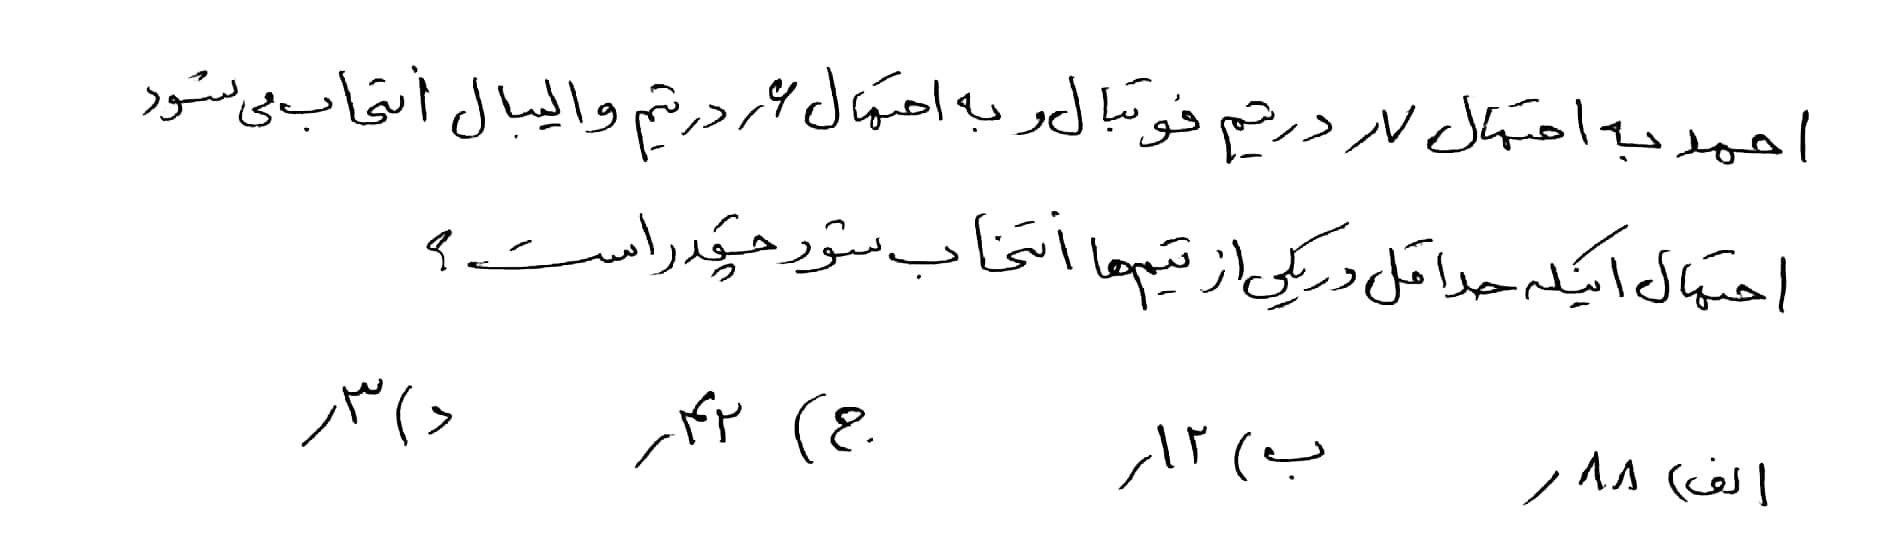 احمد به احتمال ۰٫۷ در تیم فوتبال و به احتمال ۰٫۶ در تیم والیبال انتخاب می شود
احتمال اینکه حداقل در یکی از تیم ها انتخاب شود چقدر است ؟
الف) ۰٫۸۸ ب) ۰٫۱۲ ج) ۰٫۴۲ د) ۰٫۳